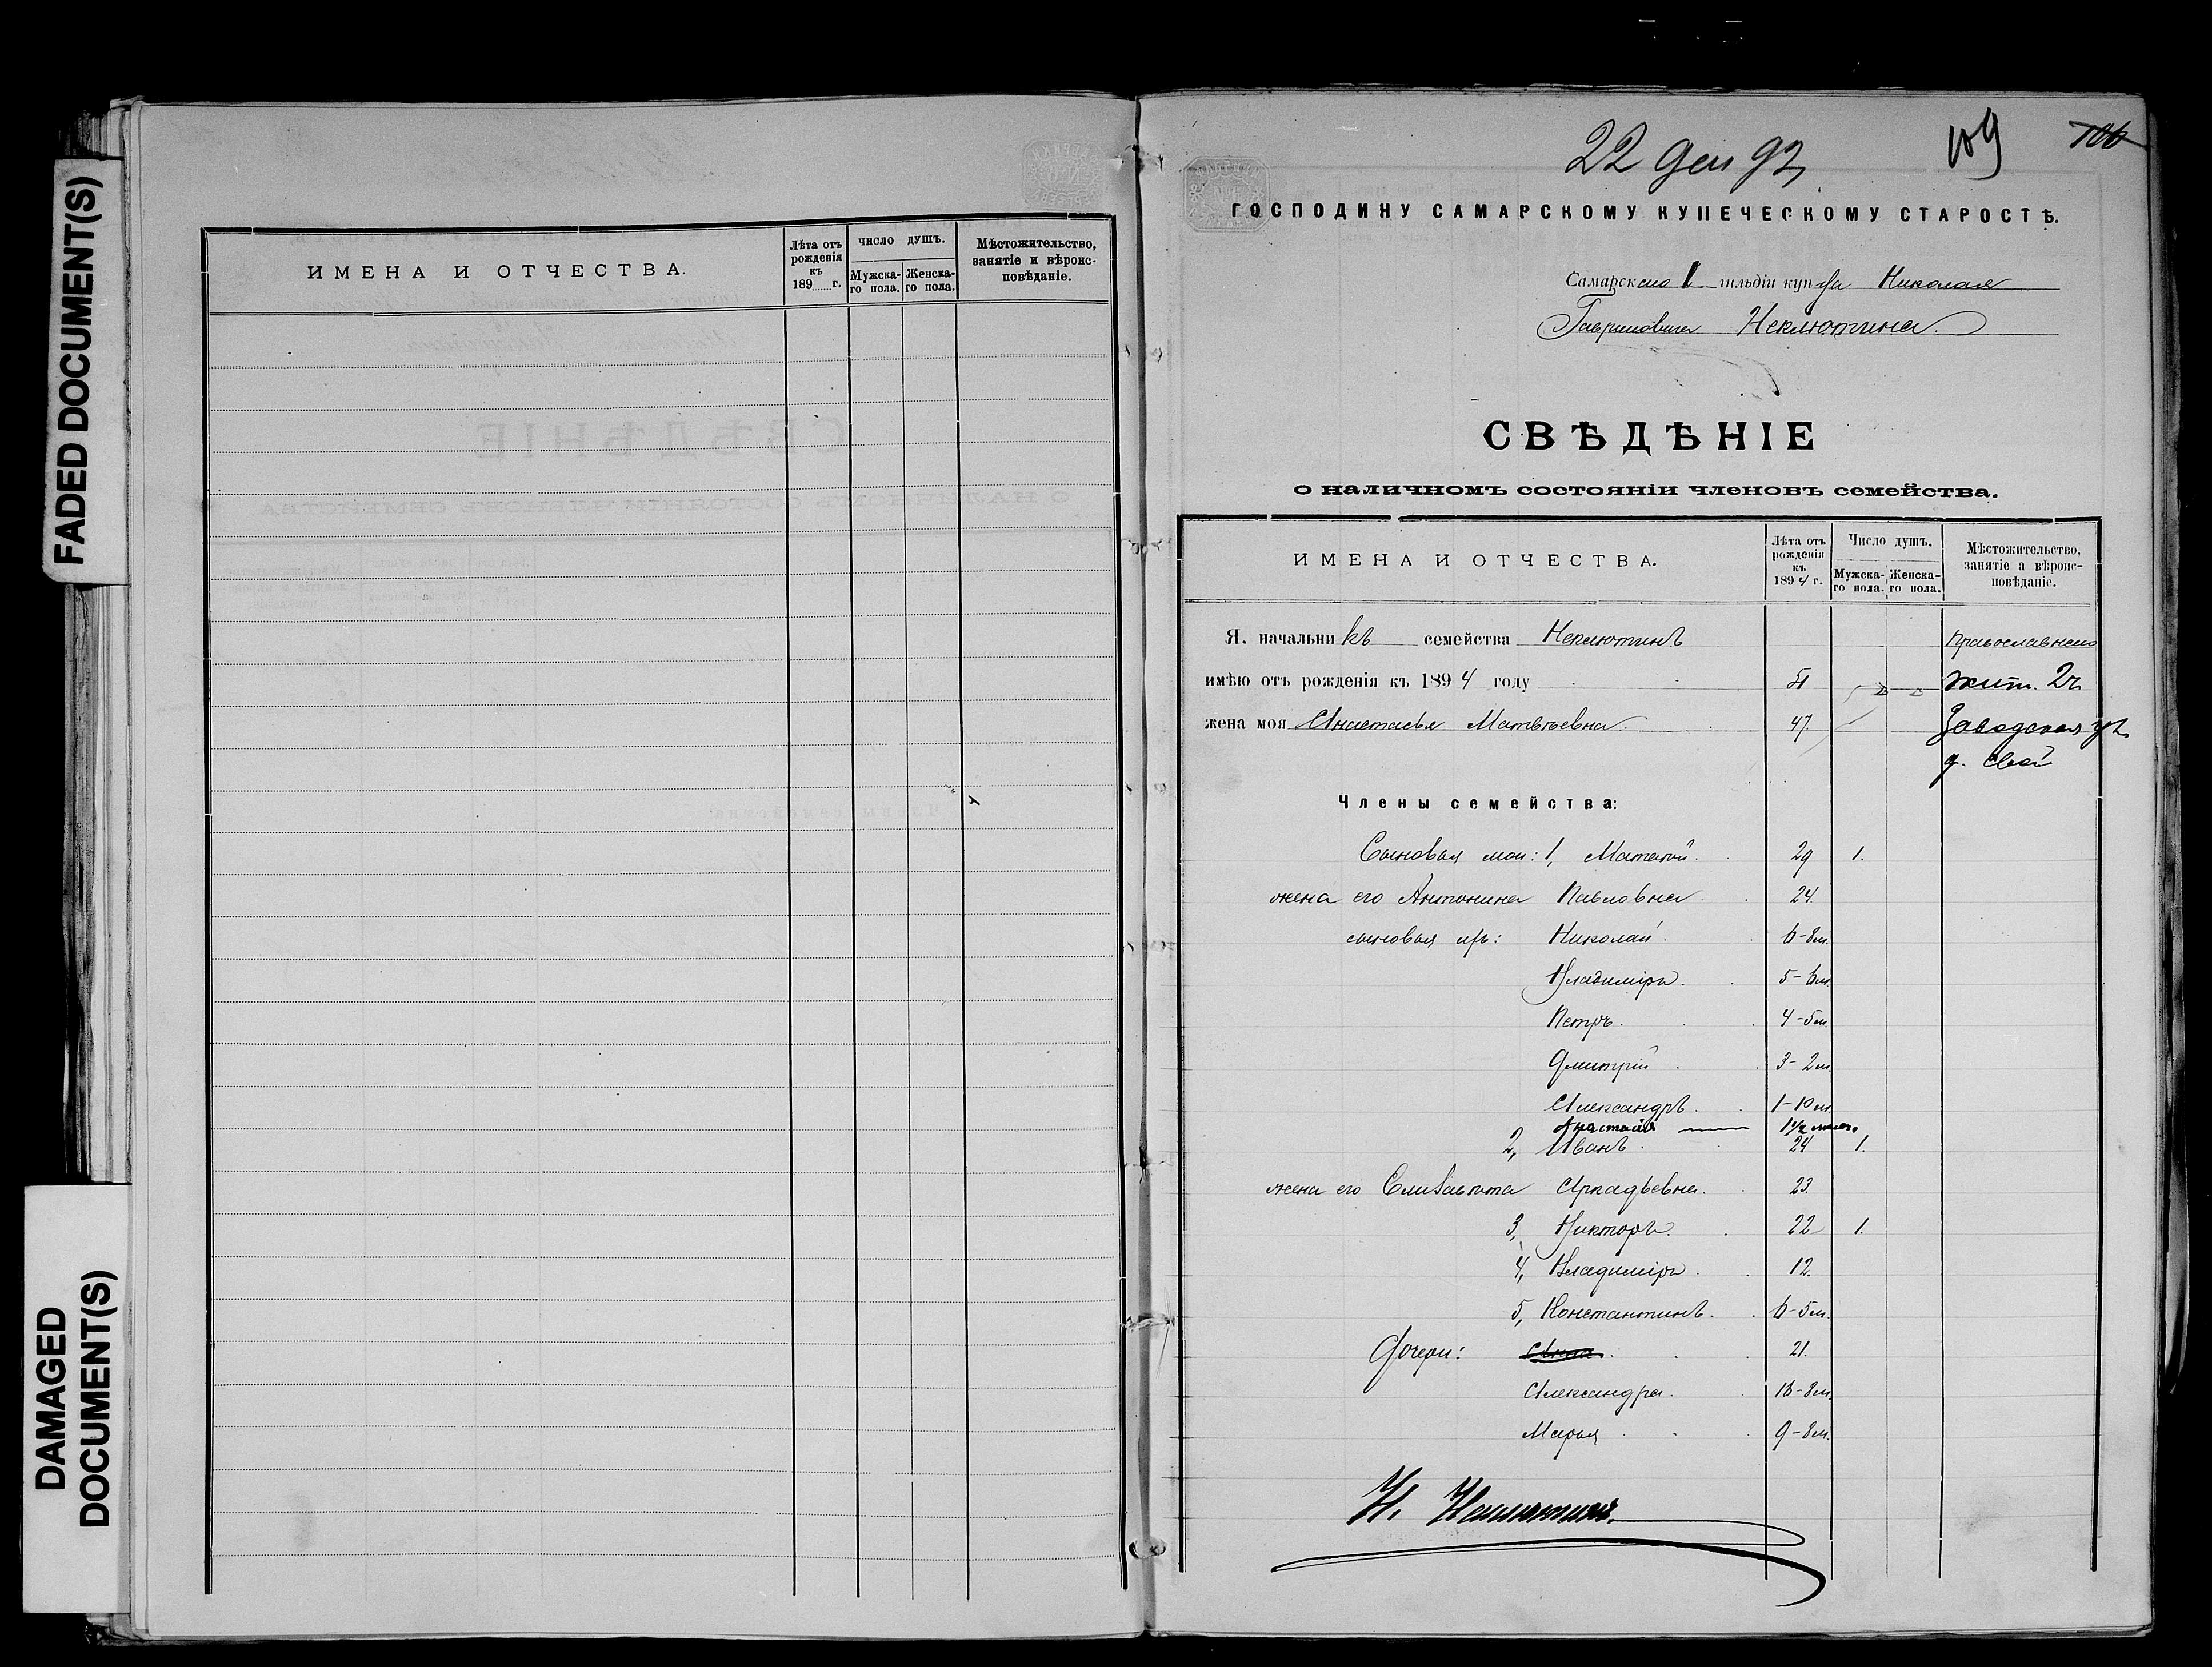 FADED DOCUMENT(S)
DAMAGED
DOCUMENT(S)
ИМЕНА И ОТЧЕСТВА.
Лѣта отъ рожденія къ 189 г.
ЧИСЛО ДУШЪ.
Мужска-го пола.
Женска-го пола.
Мѣстожительство, занятіе и вѣроис-повѣданіе.
22 Дек 93
109
106
ГОСПОДИНУ САМАРСКОМУ КУПЕЧЕСКОМУ СТАРОСТѢ.
Самарскаго 1 гильдіи купца Николая
Гавриловича Неклютина.
СВѢДѢНІЕ
о наличномъ состояніи членовъ семейства.
ИМЕНА И ОТЧЕСТВА.
Лѣта отъ рожденія къ 1894 г.
Число душъ.
Мужска-го пола.
Женска-го пола.
Мѣстожительство, занятіе а вѣроис-повѣданіе.
Я. начальникъ семейства Неклютинъ Православнаго
имѣю отъ рожденія къ 1894 году 51 жит. 2ч.
жена моя Анастасья Матвѣевна 47. Заводская ул.
д. свой
Члены семейства:
Сыновья мои: 1, Матвѣй 29 1.
жена его Антонина Павловна 24.
сыновья ихъ: Николай 6-8м.
Владиміръ. 5-6м.
Петръ. 4-5м.
Дмитрій 3-2м.
Александръ. 1-10м.
Анастасія 1 1/2 мѣс.
2, Иванъ 24 1.
жена его Елизавета Аркадьевна. 23.
3, Викторъ. 22 1.
4, Владиміръ. 12.
5, Константинъ. 6-5м.
Дочери: Анна. 21.
Александра. 16-8м.
Марья 9-8м.
Н. Неклютинъ.